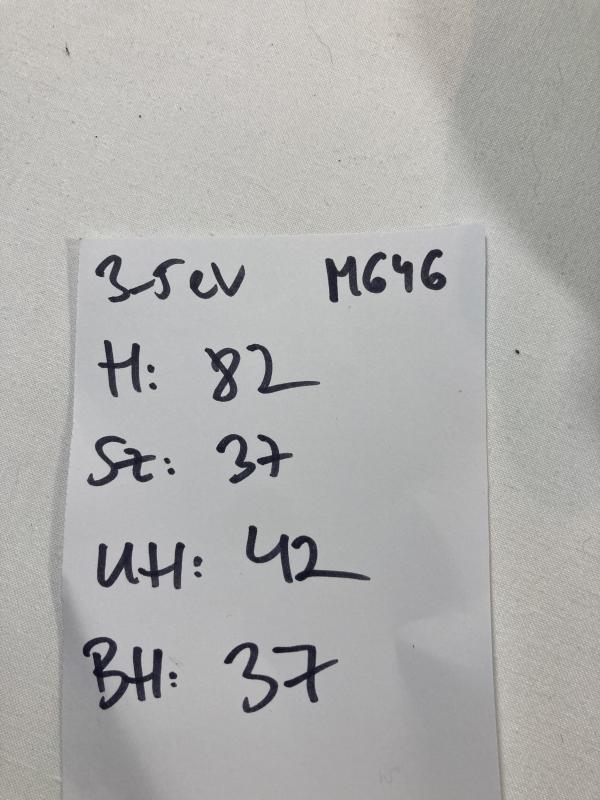 3-5 eV M646
H: 82
Sz: 37
UH: 42
BH: 37